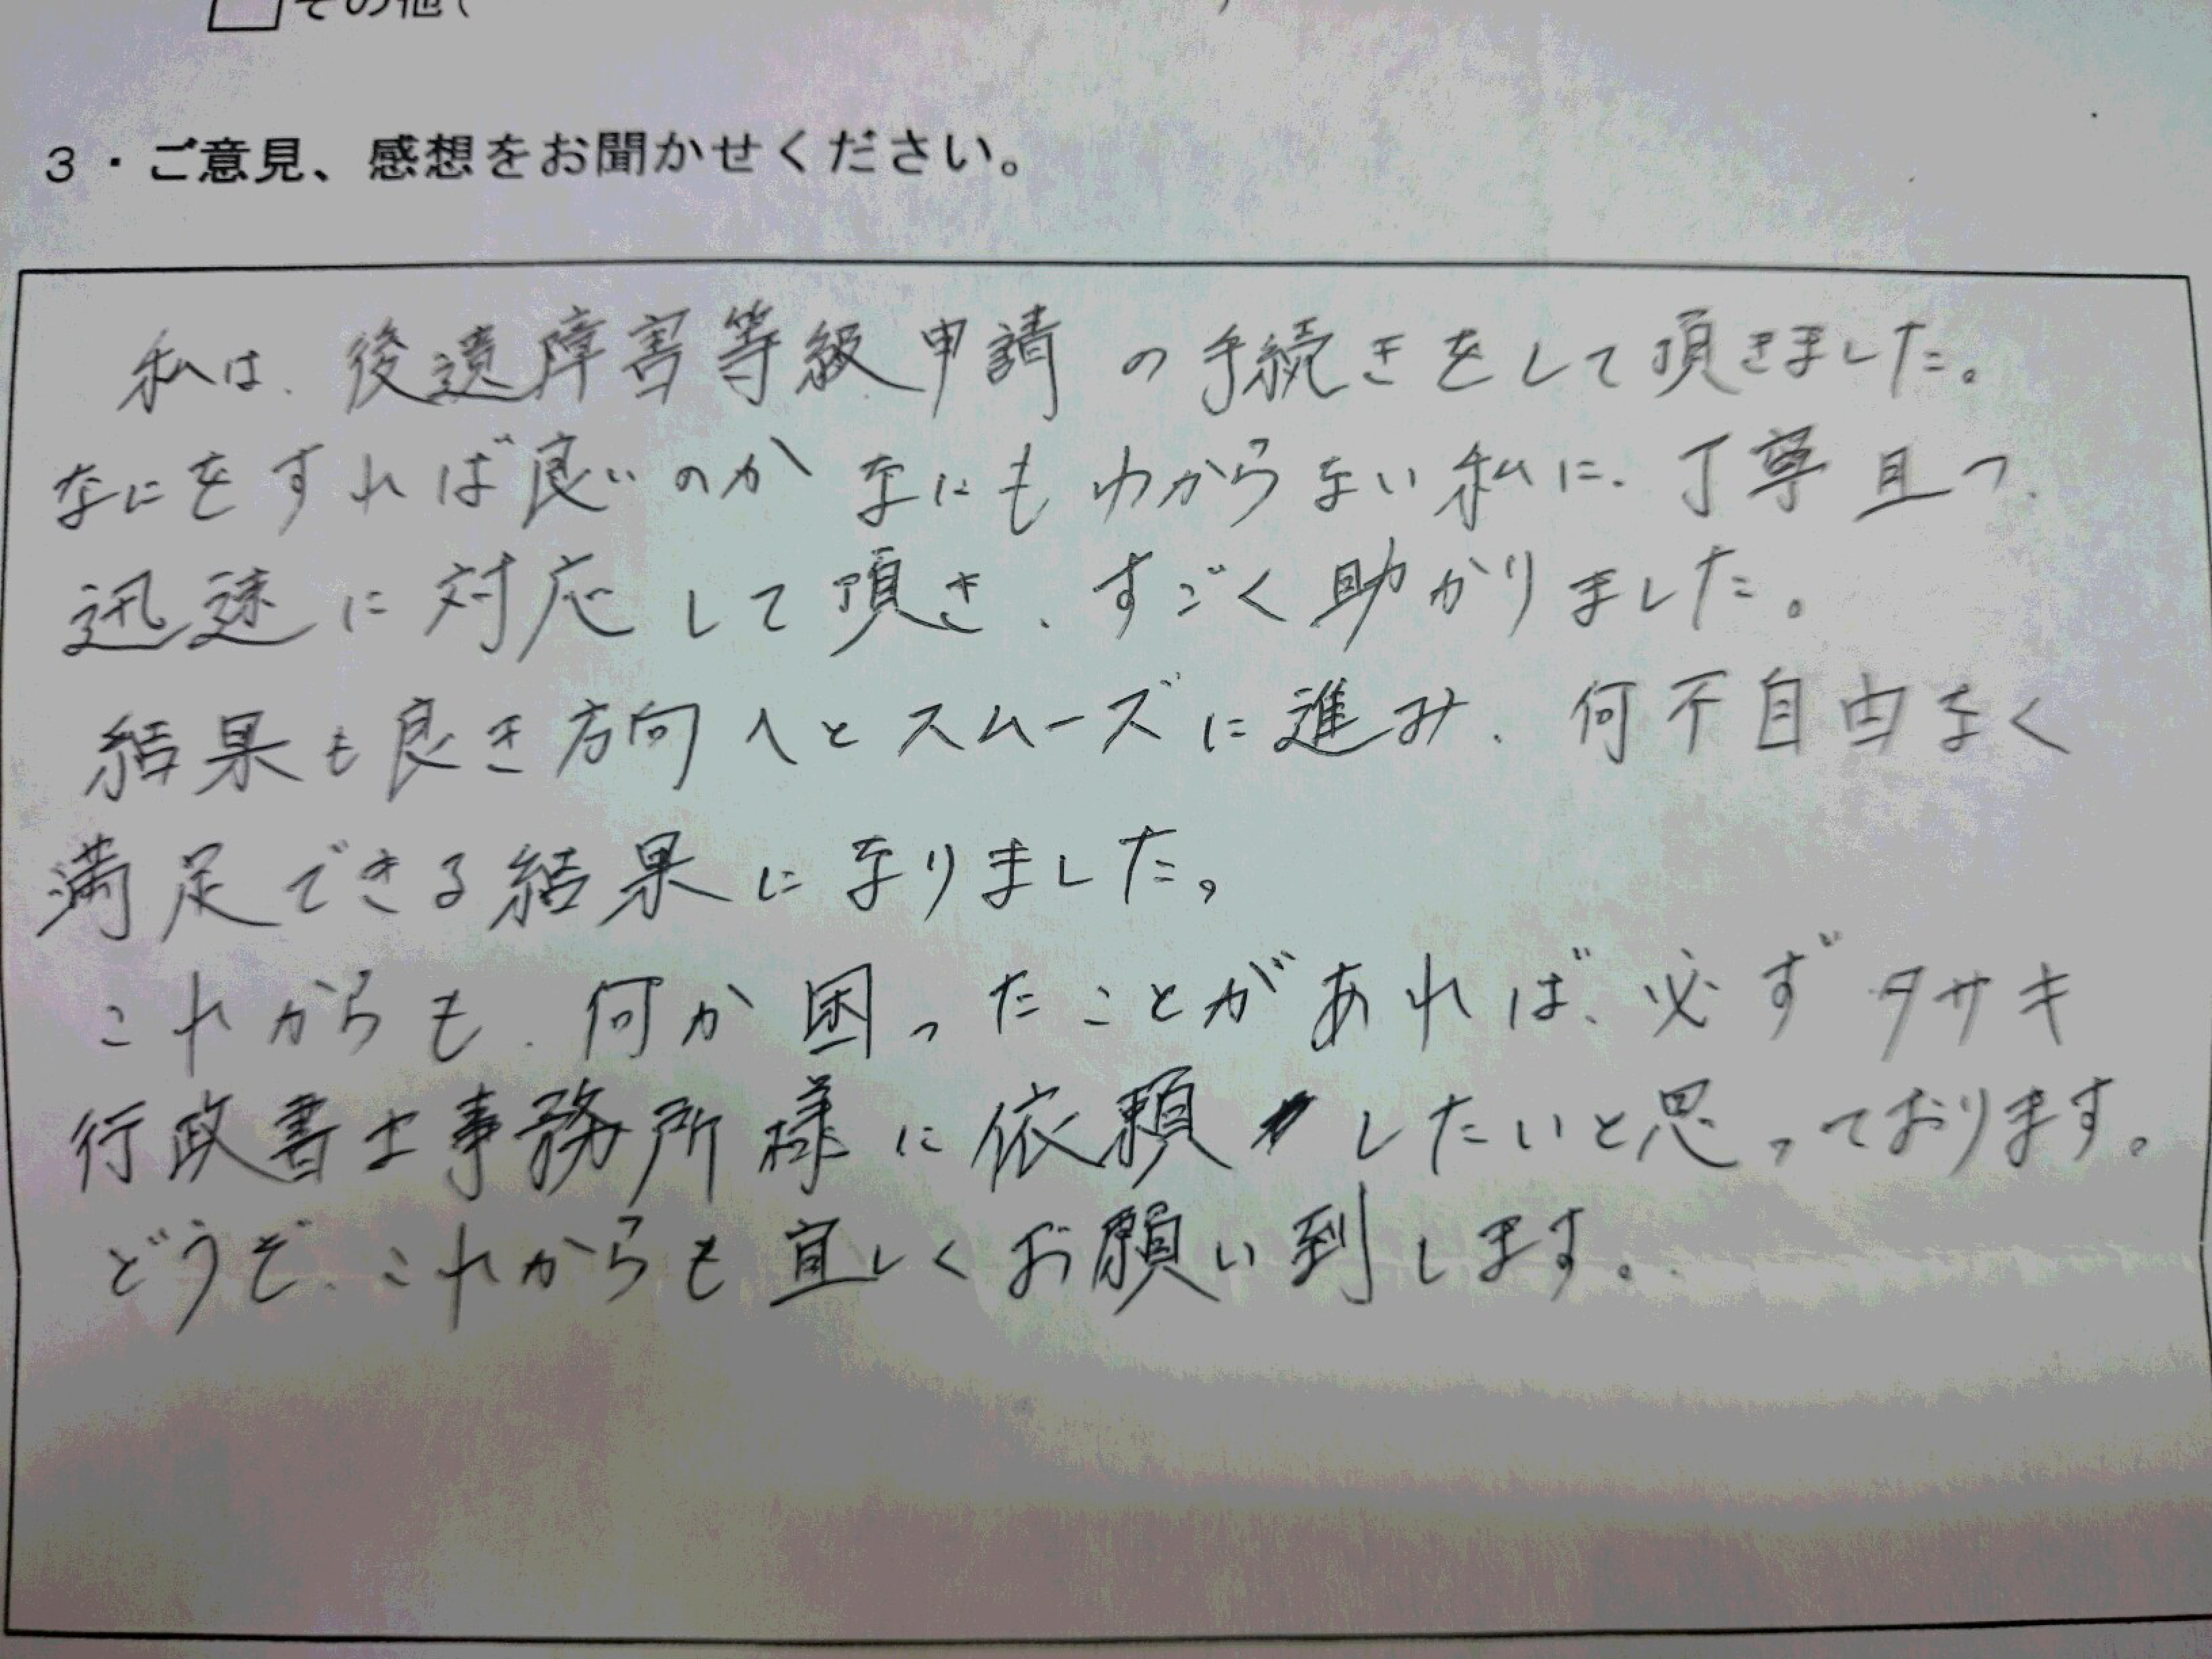 □その他(
3・ご意見、感想をお聞かせください。
私は、後遺障害等級申請の手続きをして頂きました。
なにをすれば良いのかなにもわからない私に、丁寧且つ、
迅速に対応して頂き、すごく助かりました。
結果も良き方向へとスムーズに進み、何不自由なく
満足できる結果になりました。
これからも、何か困ったことがあれば、必ずタサキ
行政書士事務所様に依頼したいと思っております。
どうぞ、これからも宜しくお願い到します。